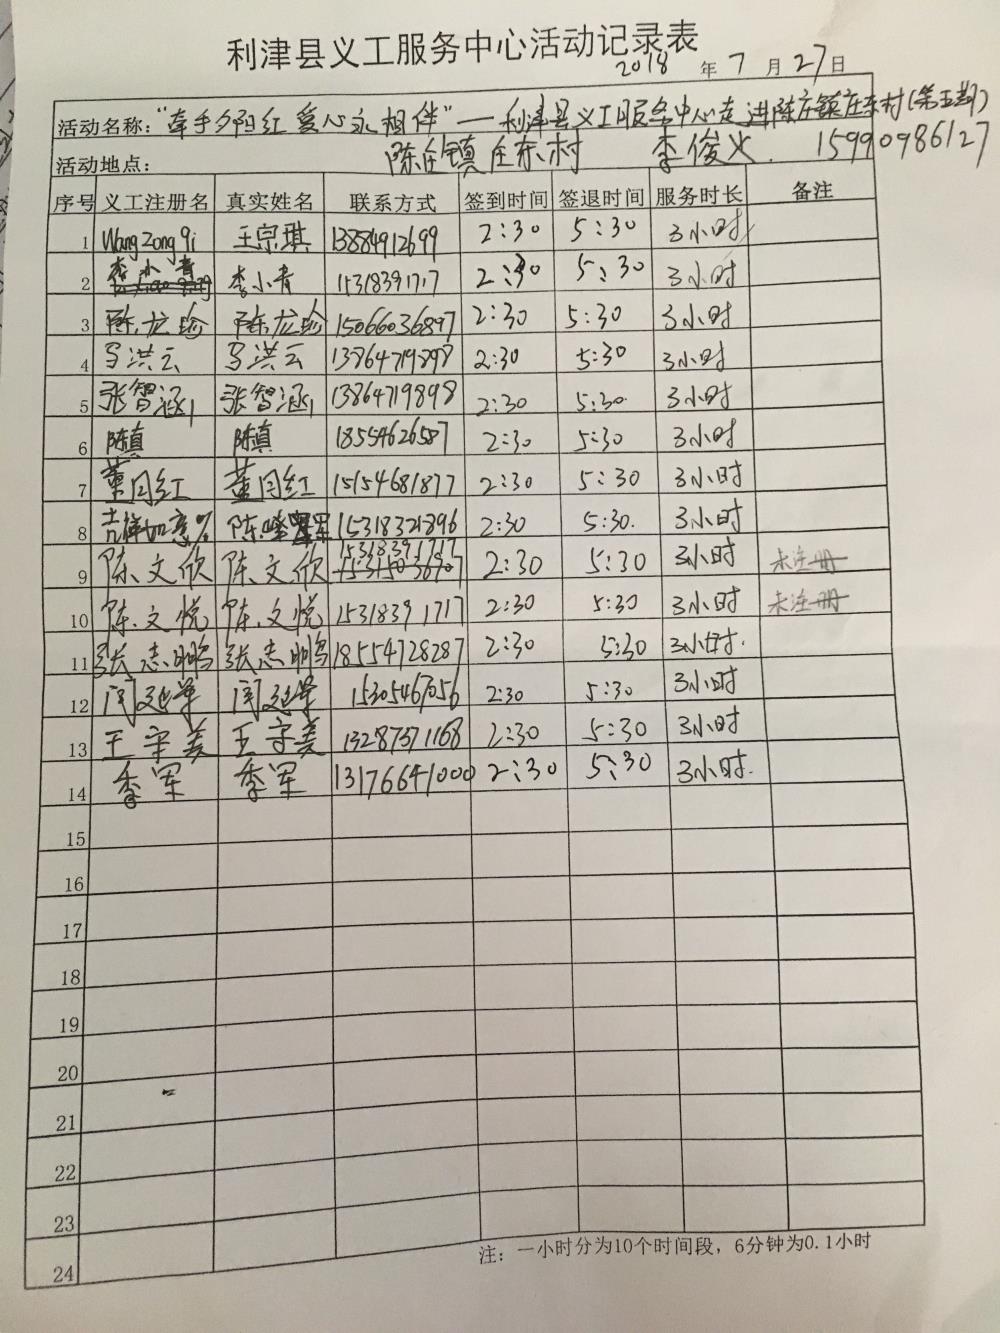 利津县义工服务中心活动记录表
2018 年 7 月 27 日
活动名称："牵手夕阳红 爱心永相伴"一利津县义工服务中心走进陈庄镇庄东村(第五期)
活动地点： 陈庄镇庄东村 李俊义. 15990986127
序号 义工注册名 真实姓名 联系方式 签到时间 签退时间 服务时长 备注
1 Wang Zong qi 王宗琪 13884912699 2:30 5:30 3小时
2 李小青 李小青 15318391717 2:30 5:30 3小时
3 陈龙珍 陈龙珍 15066036897 2:30 5:30 3小时
4 马洪云 马洪云 13864719898 2:30 5:30 3小时
5 张智涵 张智涵 13864719898 2:30 5:30. 3小时
6 陈真 陈真 18554626587 2:30 5:30 3小时
7 董月红 董月红 15154681877 2:30 5:30 3小时
8 吉祥如意 陈 军 15318321896 2:30 5:30. 3小时
9 陈文欣 陈文欣 15318391717 2:30 5:30 3小时 未注册
10 陈文悦 陈文悦 15318391717 2:30 5:30 3小时 未注册
11 张志鹏 张志鹏 18554728287 2:30 5:30 3小时.
12 闫延军 闫延军 15305467056 2:30 5:30 3小时
13 王守美 王守美 13287371168 2:30 5:30 3小时
14 季军 季军 13176641000 2:30 5:30 3小时.
15
16
17
18
19
20
21
22
23
24
注：一小时分为10个时间段，6分钟为0.1小时